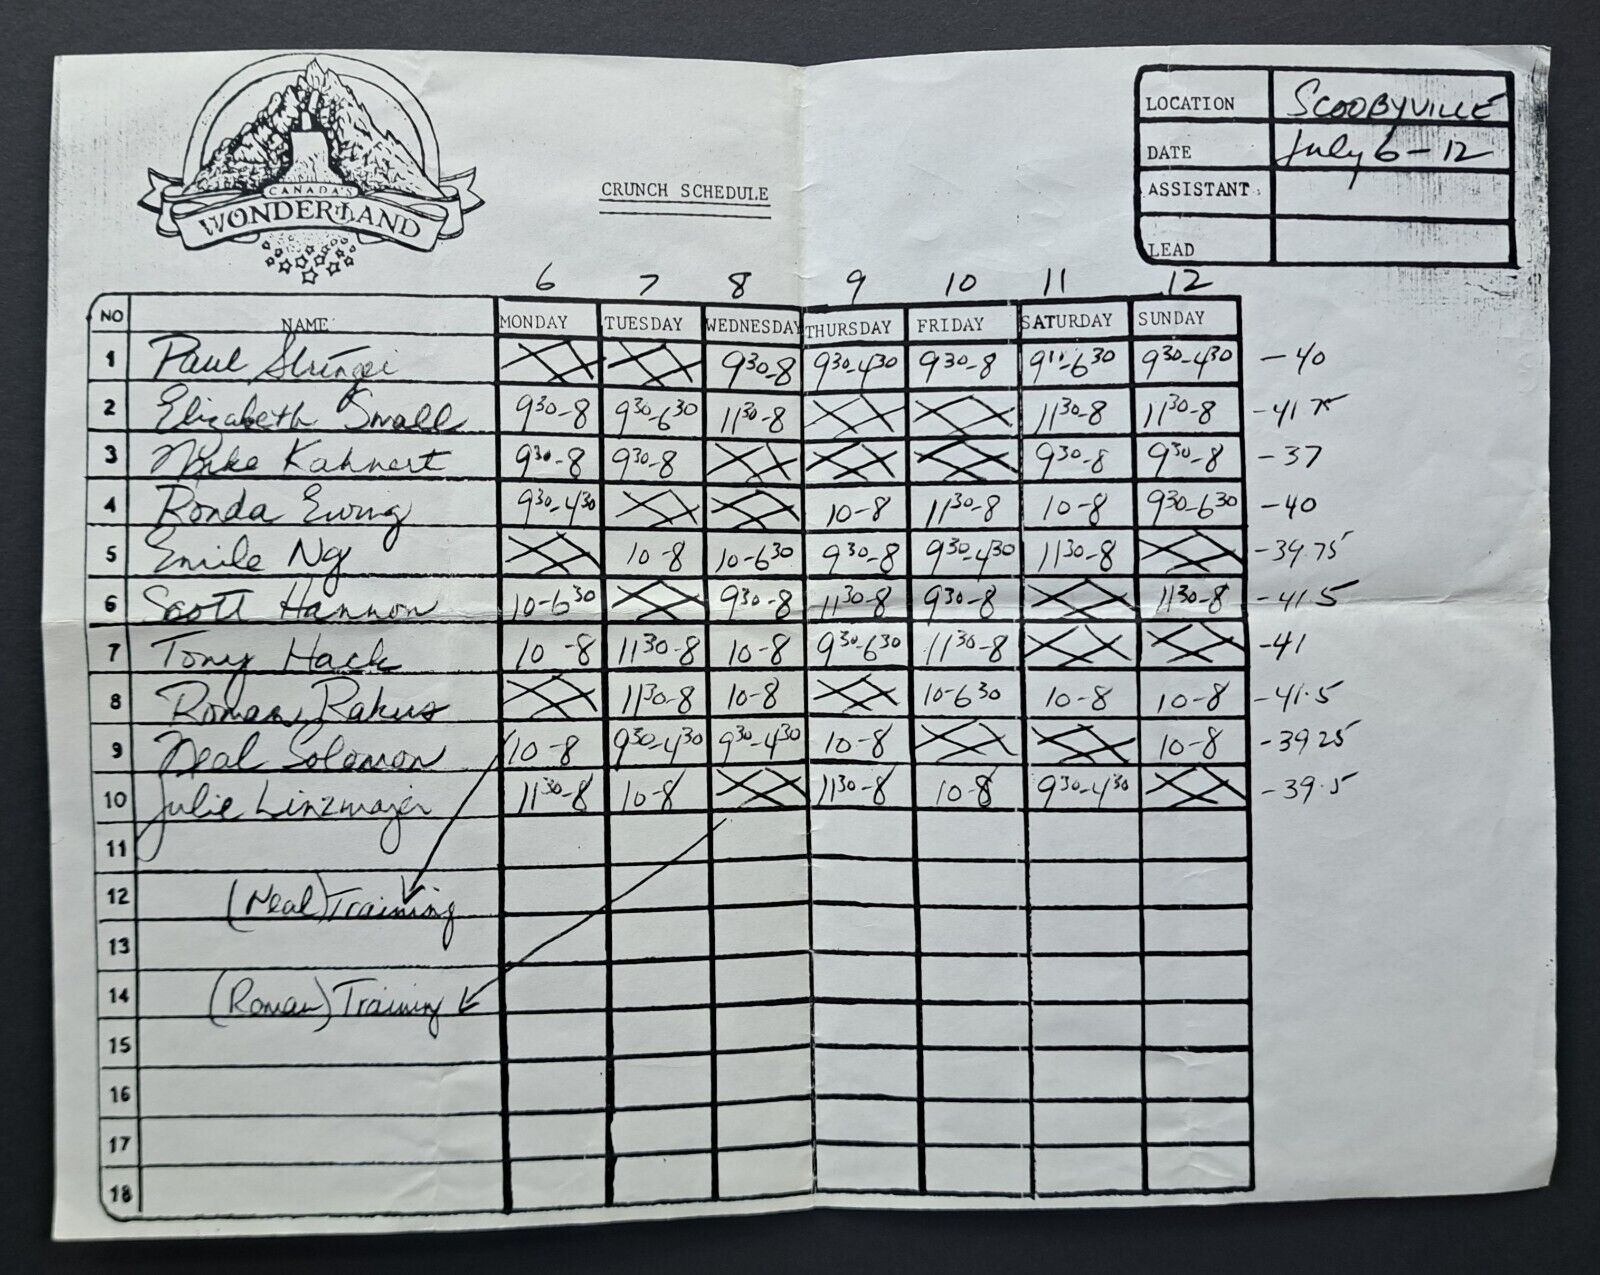 CANADA'S
WONDERLAND
CRUNCH SCHEDULE
LOCATION SCOOBYVILLE
DATE July 6-12
ASSISTANT
LEAD
6 7 8 9 10 11 12
NO NAME MONDAY TUESDAY WEDNESDAY THURSDAY FRIDAY SATURDAY SUNDAY
1 Paul 9 30-8 9 30-4 30 9 30-8 9 11-6 30 9 30-4 30 -40
2 Elizabeth Small 9 30-8 9 30-6 30 11 30-8 11 30-8 11 30-8 -41 75
3 Mike Kahnert 9 30-8 9 30-8 9 30-8 9 30-8 -37
4 Ronda Ewing 9 30-4 30 10-8 11 30-8 10-8 9 30-6 30 -40
5 Emile Ng 10-8 10-6 30 9 30-8 9 30-4 30 11 30-8 -39.75
6 Scott Hannon 10-6 30 9 30-8 11 30-8 9 30-8 11 30-8 -41.5
7 Tony Hack 10-8 11 30-8 10-8 9 30-6 30 11 30-8 -41
8 Roman Rakus 11 30-8 10-8 10-6 30 10-8 10-8 -41.5
9 Neal Solomon 10-8 9 30-4 30 9 30-4 30 10-8 10-8 -39 25
10 Julie Linzmajer 11 30-8 10-8 11 30-8 10-8 9 30-4 30 -39.5
11
12 (Neal) Training
13
14 (Roman) Training
15
16
17
18